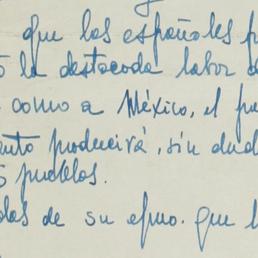 que los españoles p
ó la destacada labor d
como a México, el pu
uto producirá, sin dud
s pueblos.
das de su efmo. que l